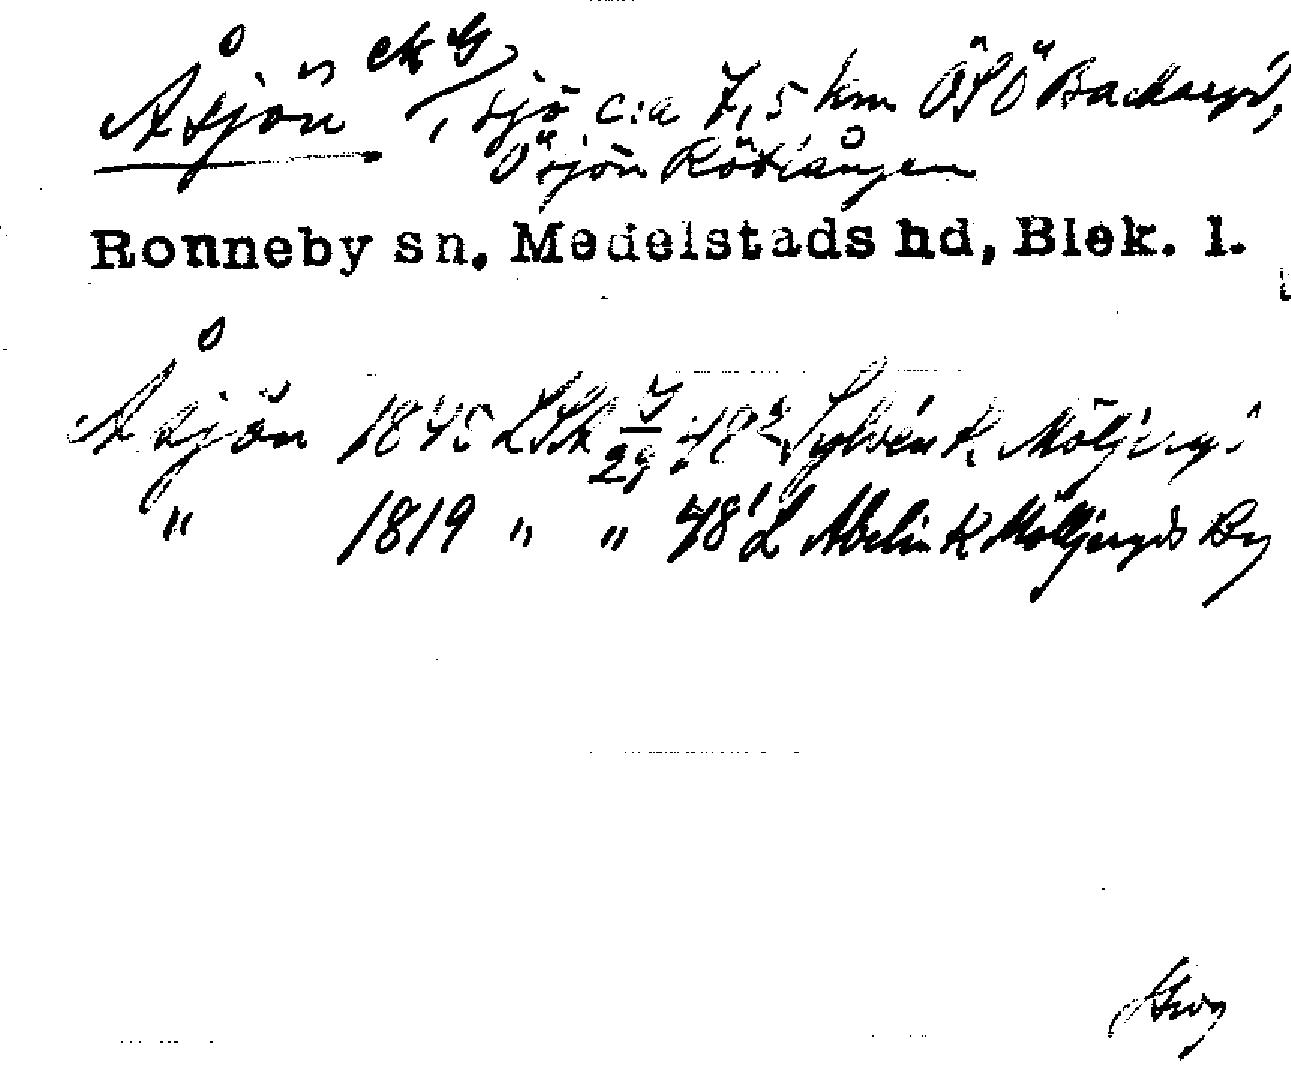 Åsjön ek G / sjö c:a 7,5 km ÖSÖ Backaryd,
Ösjön
Ronneby sn, Medelstads hd, Blek. l.
Åsjön 1845 LSA G/29:48² Sylvén K Möljeryd
" 1819 " " 48¹ L Abelin K Möljeryds By